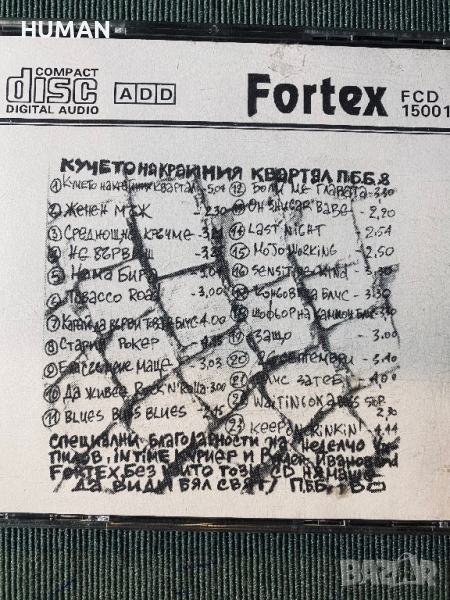 HUMAN
COMPACT
disc
DIGITAL AUDIO
ADD
Fortex
FCD
15001
КУЧЕТО НА КРАЙНИЯ КВАРТАЛ П.Б.Б.
1 Кучето на крайния квартал - 5,04
2 Женен мъж - 2,30
3 Среднощна кръчме -
4 Не вярваш
5 Няма бира
6 Tobacco Road - 3,00
7 Карай да върви блус 4.00
8 Стария Рокер
9 маще - 3,03
10 Да живее Rock N'Rolla - 3,00
11 Blues Blues Blues - 2,45
12 Боли ме главата - 3,30
13 Он Sugar Babe - 2,20
14 Last Night 2,54
15 Mojo Working 2,50
16 Sensitive Kind - 3,30
17 блус - 3,30
18 камион блус
19 Защо - 3.00
20 26 септември - 3.40
21 Блус за теб - 4.00
22 Waiting on a
23 Keep on Drinkin' 4.44
СПЕЦИАЛНИ БЛАГОДАРНОСТИ НА НЕДЕЛЧО
INTIME КУРИЕР И ИВАНОВ
FORTEX, БЕЗ КОИТО ТОЗИ CD НЯМАШЕ
ДА ВИДИ БЯЛ СВЯТ! П.Б.Б.
BAZAR